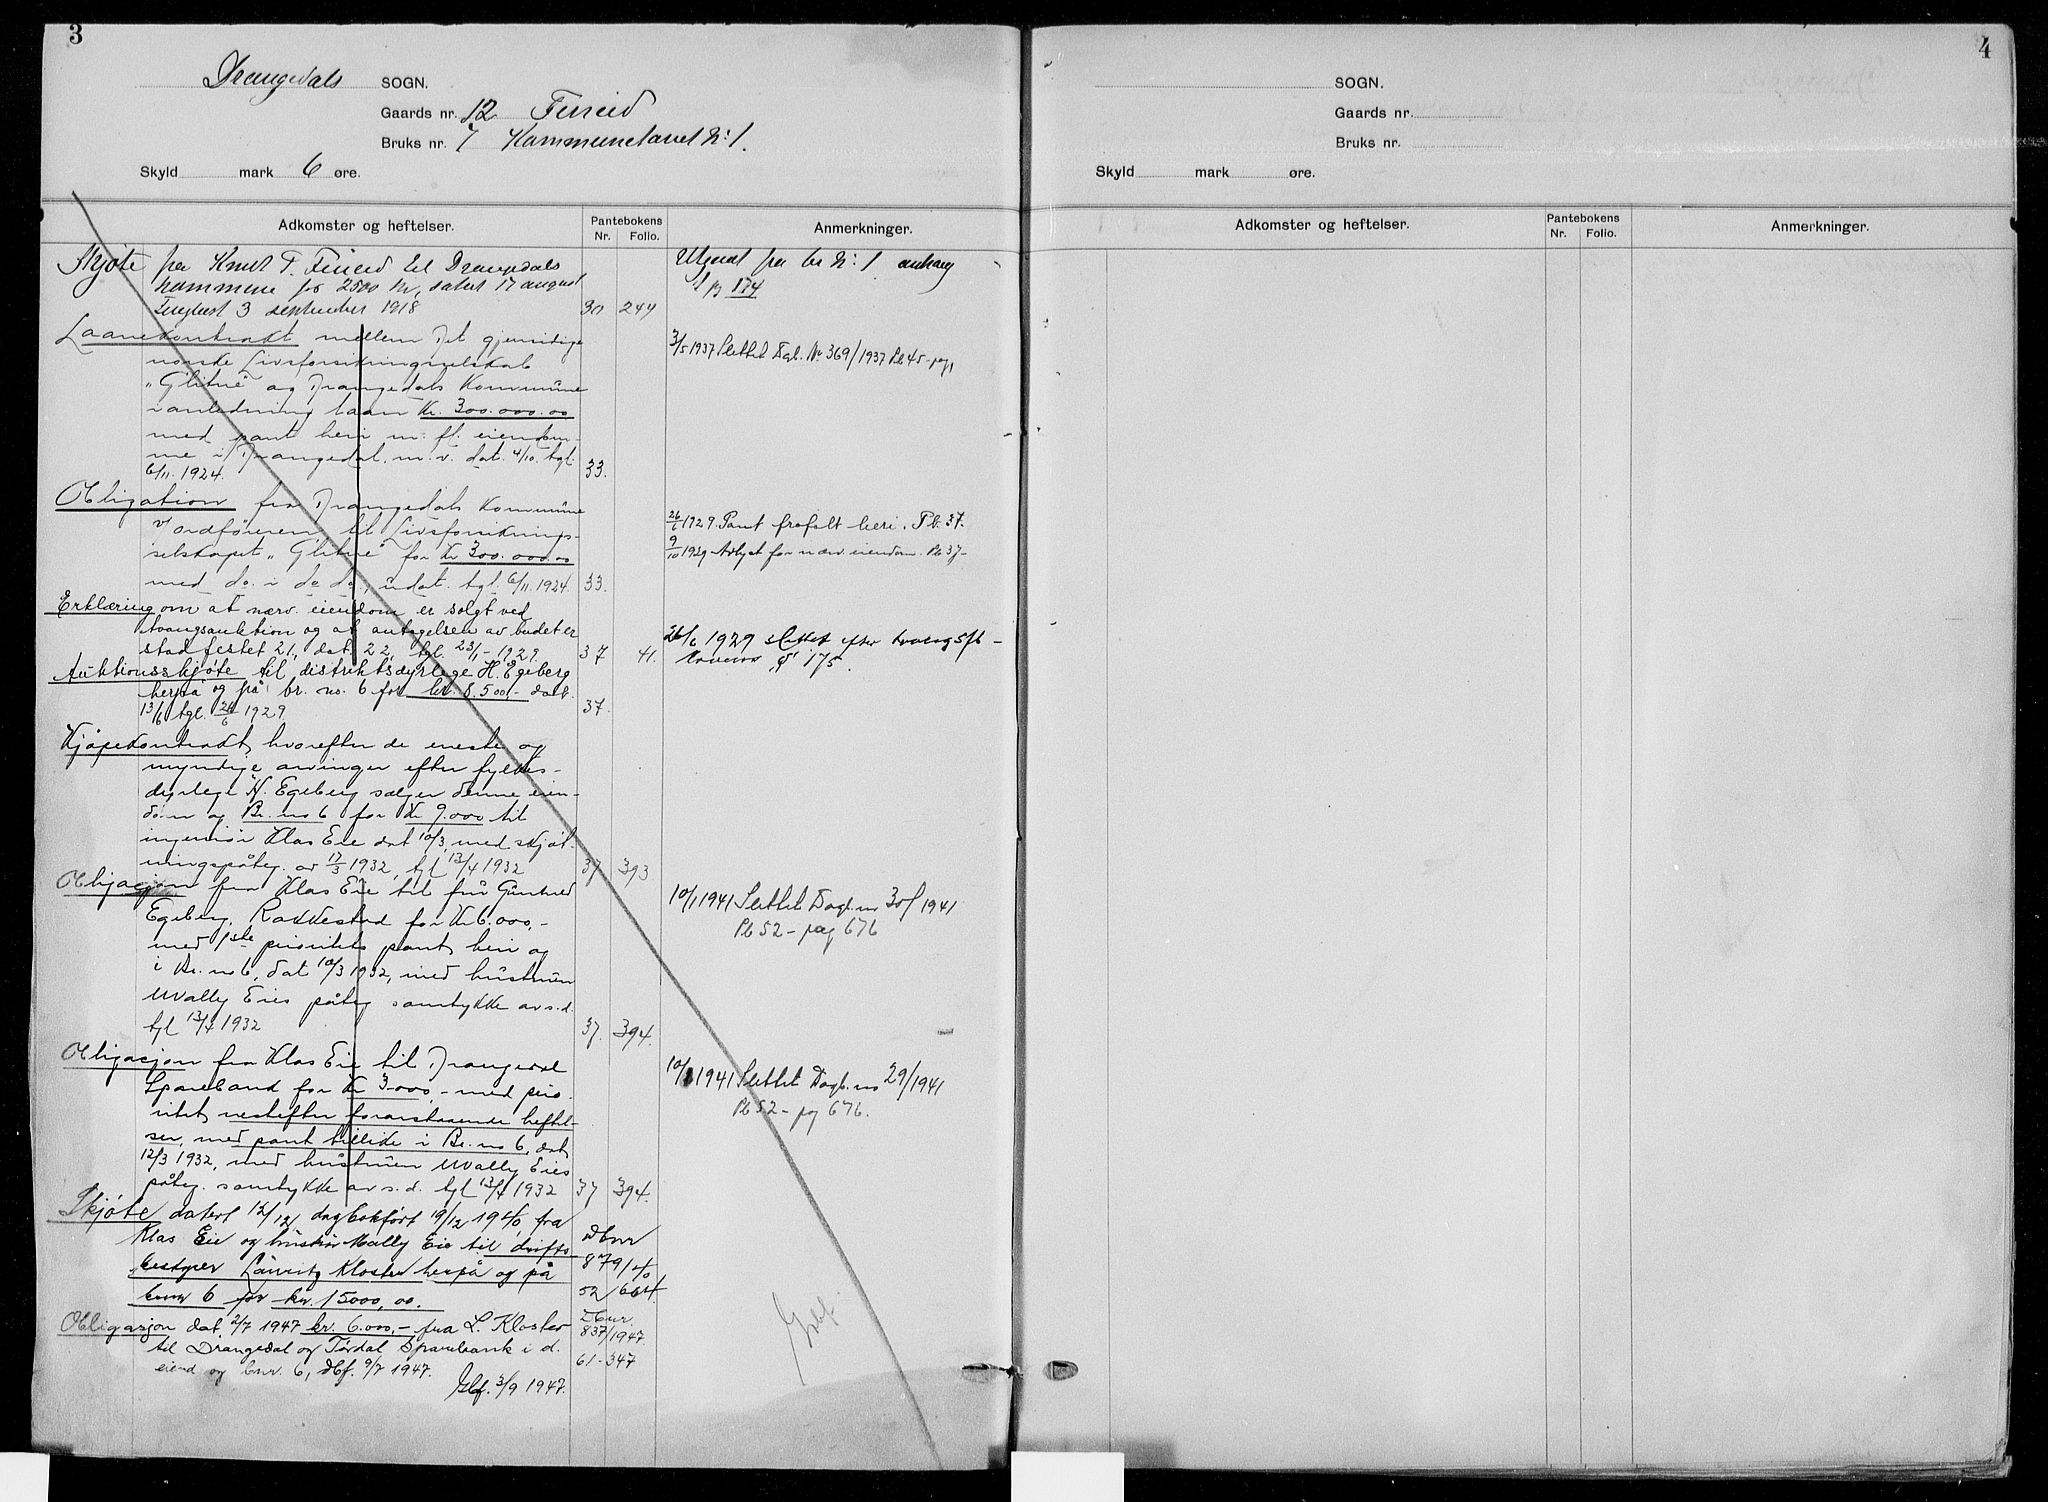 3
Drangedals SOGN.
Gaards nr. 12
Bruks nr. 7 Kommunetaret No: 1.
Skyld mark 6 øre.
Adkomster og heftelser.
Pantebokens
Nr. Folio.
Anmerkninger.
Skjøte fra Knut T. til Drangedals
kommune for 2500 kr, datert 17 august
tinglyst 3 september 1918 30 244
Utgaat fra br No: 1
174
Laanekontrakt mellem Det gjensidige
norske Livsforsikringsselskab
"Glitne" og Drangedals Kommune
i anledning laan Kr. 300.000.00
med pant heri m. fl. eiendom-
me i Drangedal. m. v. dat. 4/10. tgl.
6/11. 1924. 33.
3/5 1937 Slettet Dgb. No 369/1937 Pb 45 - pg 1
Obligation fra Drangedals Kommune
v/ordføreren til Livsforsiknings-
selskapet "Glitne" for Kr 300.000.00
med do. i do do, udat. tgl. 6/11. 1924. 33.
26/6 1929. Pant frafalt heri. Pb. 37.
9/10 1929 Avlyst for nærv. eiendom. Pb 37 -
Erklæring om at nærv. eiendom er solgt ved
tvangsauktion og at antagelsen av budet er
stadfestet 21, dat. 22, tgl. 23/1 - 1929. 37 41.
26/6 1929 slettet efter tvangsfb -
lovens § 175.
Auktionsskjøte til distriktsdyrlege H. Egeberg
herpå og på br. no. 6 for kr. 8.500,- dat.
13/6 tgl. 26/6 1929 37.
Kjøpekontrakt, hvorefter de eneste og
myndige arvinger efter fylkes-
dyrlege N. Egeberg sælger denne eien-
dom og Br. no 6 for Kr 9.000 til
ingeniør Klas Eie dat 10/3, med skjøt-
ningspåteg. av 17/3 1932, tgl 13/4 1932 37 393
Obligasjon fra Klas Eie til fru Gunhild
Egeberg, Rakkestad for Kr 6.000,-
med 1ste prioritets pant heri og
i Br. no 6, dat 10/3 1932, med hustruen
Wally Eies påteg samtykke av s. d.
tgl 13/4 1932 37. 394.
10/1 1941 Slettet Dagb. no 30/1941
Pb 52 - pag 676
Obligasjon fra Klas Eie til Drangedal
Sparebank for Kr 3.000,- med prio-
ritet nestefter foranstaaende heftel-
ser, med pant tillike i Br. no 6, dat
12/3 1932, med hustruen Wally Eies
påteg. samtykke av s. d. tgl 13/4 1932 37 394.
10/1 1941 Slettet Dagb. no 29/1941
Pb 52 - pg 676.
Skjøte datert 12/12, dagbokført 19/12 1940, fra
Klas Eie og hustru Wally Eie til drifts-
bestyrer Lauritz Kloster herpå og på
bnr 6 for kr. 15000,00.
dbnr
879/40
52 664.
Obligasjon dat. 2/7 1947 kr. 6.000,- fra L. Kloster
til Drangedal og Tørdal Sparebank i d.
eiend og bnr. 6, dbf. 9/7 1947.
Dbnr.
837/1947.
61 - 347
Glbf. 3/9 1947.
4
SOGN.
Gaards nr.
Bruks nr.
Skyld mark øre.
Adkomster og heftelser.
Pantebokens
Nr. Folio.
Anmerkninger.